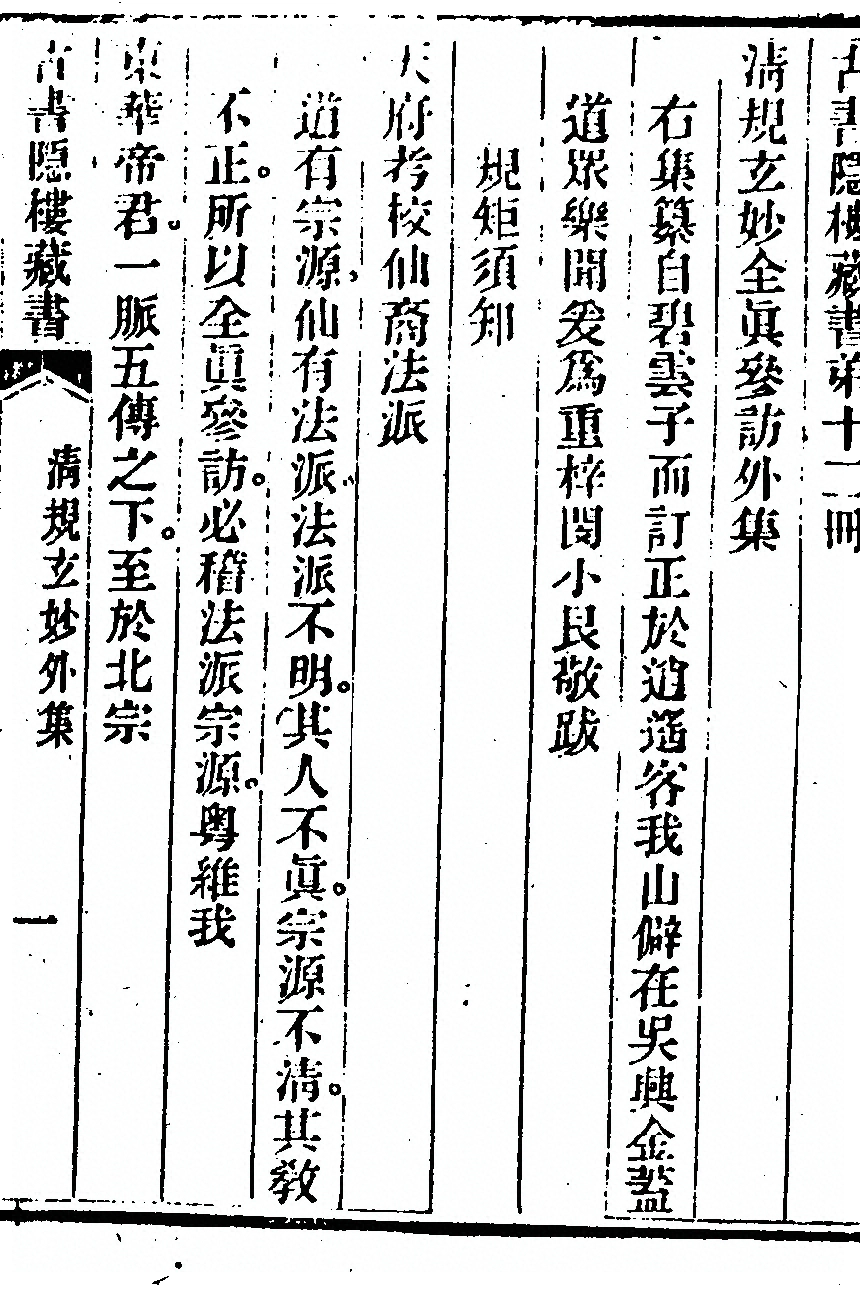 古書隱樓藏書第十二冊
清規玄妙全眞參訪外集
右集纂自碧雲子而訂正於逍遙客我山僻在吳興金蓋
道眾樂聞爰爲重梓閔小艮敬跋
規矩須知
天府考校仙裔法派
道有宗源仙有法派法派不明。其人不眞。宗源不清。其敎
不正。所以全眞參訪。必稽法派宗源。粤維我
東華帝君。一脈五傳之下。至於北宗
古書隱樓藏書
清規玄妙外集
一